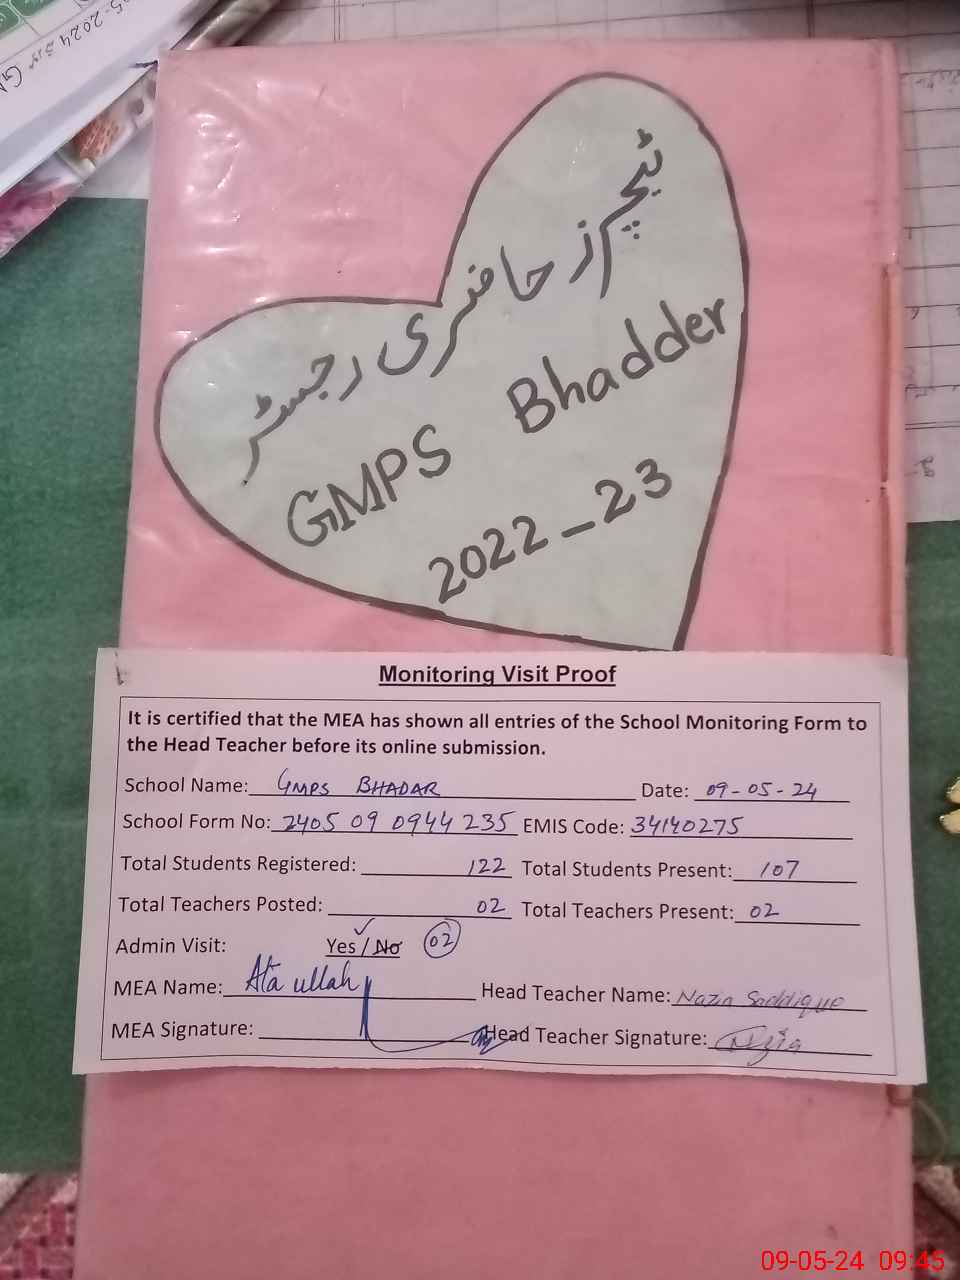 5-2024
ٹیچرز حاضری رجسٹر
GMPS Bhadder
2022_23
Monitoring Visit Proof
It is certified that the MEA has shown all entries of the School Monitoring Form to
the Head Teacher before its online submission.
School Name: GMPS BHADAR Date: 09-05-24
School Form No: 2405 09 0944 235 EMIS Code: 34140275
Total Students Registered: 122 Total Students Present: 107
Total Teachers Posted: 02 Total Teachers Present: 02
Admin Visit: Yes / No 02
MEA Name: Ata ullah Head Teacher Name: Nazia Saddique
MEA Signature: Head Teacher Signature:
09-05-24 09:45